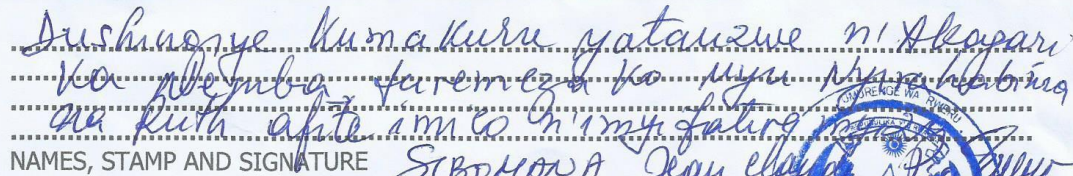 Dushingiye Kumakuru yatanzwe ni Akagari
Ka Nemba turemeza ko uyu Nyirahabima
na Ruth afite imico n'imyifatire myiza
NAMES, STAMP AND SIGNATURE SIBOMANA Jean Claude
UMURENGE WA RWERU